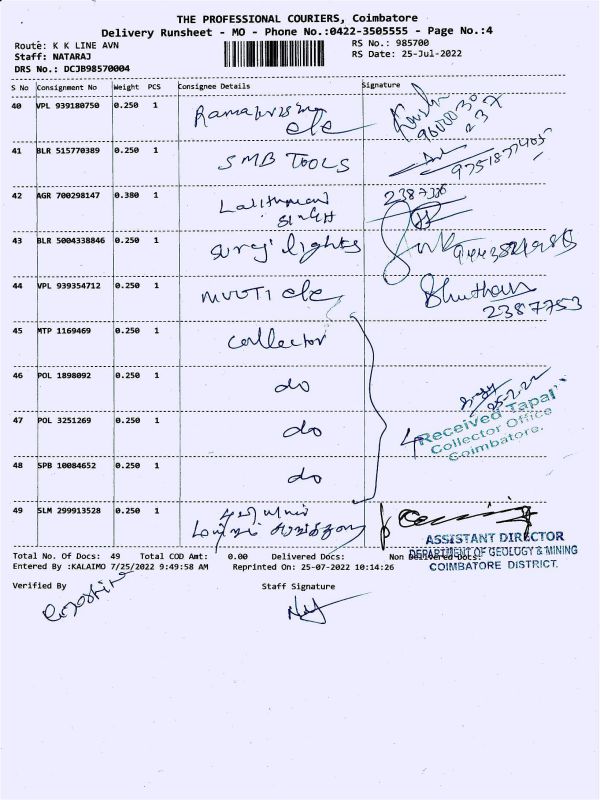 THE PROFESSIONAL COURIERS, Coimbatore
Delivery Runsheet - MO - Phone No.:0422-3505555 - Page No.:4
Route: K K LINE AVN
RS No.: 985700
Staff: NATARAJ
RS Date: 25-Jul-2022
DRS No.: DCJB98570004
S No Consignment No Weight PCS Consignee Details Signature
40 VPL 939180750 0.250 1
ele
41 BLR 515770389 0.250 1 SMB TOOLS
42 AGR 700298147 0.380 1
43 BLR 5004338846 0.250 1 suraj lights
44 VPL 939354712 0.250 1 ele
2387753
45 MTP 1169469 0.250 1 collector
46 POL 1898092 0.250 1 do
47 POL 3251269 0.250 1 do
4 Received Tapal
Collector Office
Coimbatore.
48 SPB 10084652 0.250 1 do
49 SLM 299913528 0.250 1
ASSISTANT DIRECTOR
DEPARTMENT OF GEOLOGY & MINING
COIMBATORE DISTRICT.
Total No. Of Docs: 49 Total COD Amt: 0.00 Delivered Docs: Non Delivered Docs:
Entered By :KALAIMO 7/25/2022 9:49:58 AM Reprinted On: 25-07-2022 10:14:26
Verified By Staff Signature